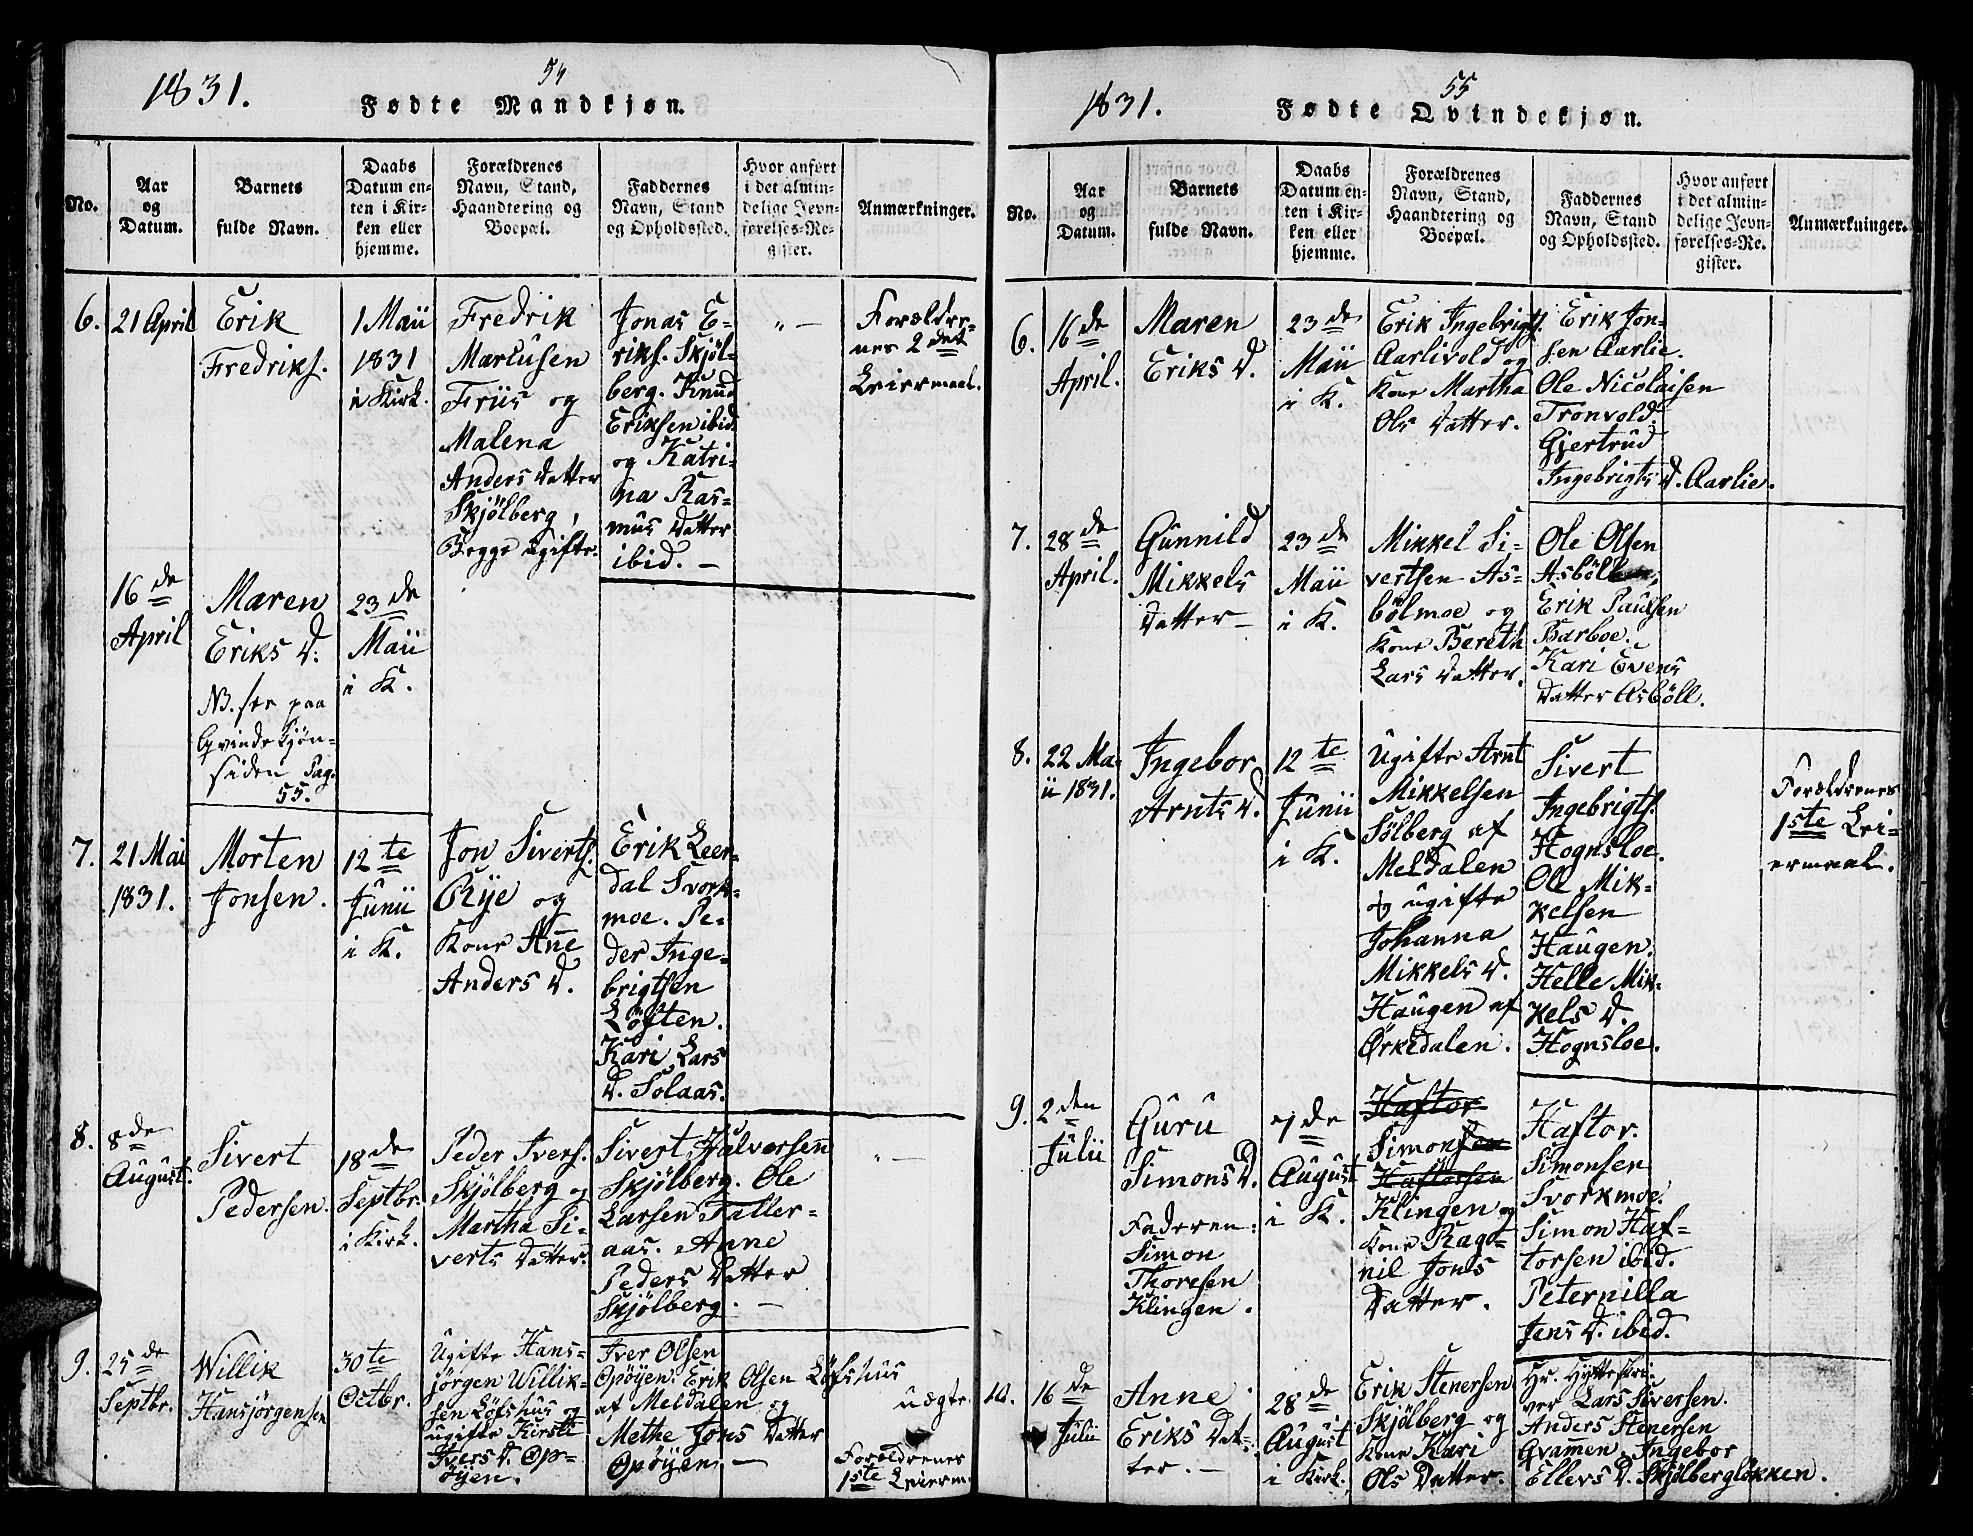 1831.
54
Fødte Mandkjøn.
No.
Aar
og
Datum.
Barnets
fulde Navn.
Daabs
Datum en-
ten i Kir-
ken eller
hjemme.
Forældrenes
Navn, Stand,
Haandtering og
Boepæl.
Faddernes
Navn, Stand
og Opholdssted.
Hvor anført
i det almin-
delige Jevn-
førelses-Re-
gister.
Anmærkninger.
6.
21 April
Erik
Fredriks.
1 Maii
1831
i Kirk.
Fredrik
Markusen
Friis og
Malena
Anders Datter
Skjølberg,
Begge ugifte.
Jonas E-
riks. Skjøl-
berg. Knud
Eriksen ibid.
og Katri-
na Ras-
mus Datter
ibid. —
" —
Forældre-
nes 2det
Leiermaal.
16de
April
Maren
Eriks D:
NB. see paa
Qvindekjøn-
siden Pag.
55.
23de
Maii
i K.
7.
21 Mai
1831.
Morten
Jonsen.
12te
Junii
i K.
Jon Siverts.
Rye og
Kone Añe
Anders D.
Erik Leer-
dal Svork-
moe. Pe-
der Inge-
brigtsen
Løften.
Kari Lars
D. Solaas.
8.
8de
August.
Sivert
Pedersen.
18de
Septbr.
i Kirk.
Peder Ivers.
Skjølberg og
Martha Si-
verts Datter.
Sivert Halvorsen
Skjølberg. Ole
Larsen Faller-
aas. Anne
Peders Datter
Skjølberg. —
" —
9.
25de
Septbr.
Willik
Hansjørgensen
30te
Octbr.
Ugifte Hans-
jørgen Willik-
sen Løfshus og
ugifte Kirsti
Ivers D. Op-
øyen.
Iver Olsen
Opøyen. Erik Olsen Løfshus
af Meldalen og
Methe Jons Datter
Opøyen. —
uægte.
Forældrenes
1ste Leierm.
1831.
55
Fødte Qvindekjøn.
No.
Aar
og
Datum.
Barnets
fulde Navn.
Daabs
Datum en-
ten i Kir-
ken eller
hjemme.
Forældrenes
Navn, Stand,
Haandtering og
Boepæl.
Faddernes
Navn, Stand
og Opholdssted.
Hvor anført
i det almin-
delige Jevn-
førelses-Re-
gister.
Anmærkninger.
6.
16de
April.
Maren
Eriks D.
23de
Maii
i K.
Erik Ingebrigts.
Aarlivold og
Kone Martha
Ols Datter.
Erik Jon-
sen Aarlie.
Ole Nicolaisen
Tronvold.
Gjertrud
Ingebrigts D. Aarlie.
7.
28de
April.
Gunnild
Mikkels
Datter —
23de
Maii
i K.
Mikkel Si-
vertsen As-
bølmoe og
Kone Bereth
Lars Datter.
Ole Olsen
Asbøll
Erik Paulsen
Barboe.
Kari Evens
Datter Asbøll.
8.
22 Ma-
ii 1831.
Ingebor
Arnts D.
12te
Junii
i K.
Ugifte Arnt
Mikkelsen
Sølberg af
Meldalen
og ugifte
Johanna
Mikkels D.
Haugen af
Ørkedalen.
Sivert
Ingebrigts.
Hognsloe.
Ole Mik-
kelsen
Haugen.
Helle Mik-
kels D.
Hognsloe.
Forældrenes
1ste Lei-
ermaal.
9.
2den
Julii
Guru
Simons D.
Faderen:
Simon
Thoresen
Klingen.
7de
August
i K.
Haftor
Simonsen
Haftorsen
Klingen og
Kone Rag-
nil Jons
Datter.
Haftor.
Simonsen
Svorkmoe.
Simon Haf-
torsen ibid.
Peternilla
Jens D. ibid.
10.
16de
Julii
Anne
Eriks Dat-
ter. —
28de
August
i Kirk.
Erik Stenersen
Skjølberg og
Kone Kari
Ols Datter.
Hr. Hytteskri-
ver Lars Siversen.
Anders Stenersen
Qvamen. Ingebor
Ellevs D. Skjølbergløkken.